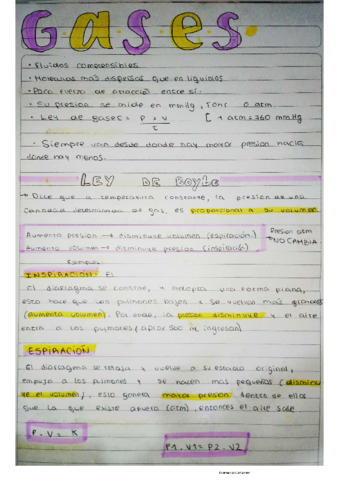 Gases.
• Fluidos comprensibles
• Moleculas más dispersas que en liquidos
• Poca fuerza de atracción entre si.
• Su presion se mide en mmHg, Torr o atm
• Ley de gases = P × V / t [ 1 atm = 360 mmHg
• Siempre van desde donde hay mayor presion hacia
donde hay menos.
LEY DE BOYLE
→ Dice que a temperatura constante, la presion de una
cantidad determinada de gas, es proporcional a su volumen
Aumenta presion → disminuye volumen (espiración)
Aumenta volumen → disminuye presion (inspiración)
Presion atm
→ NO CAMBIA
INSPIRACION: El
El diafragma se contrae, y adopta una forma plana,
esto hace que los pulmones bajen y se vuelvan más grandes
(aumenta volumen). Por ende, la presion disminuye y el aire
entra a los pulmones (aprox 500 ml ingresan)
ESPIRACION
El diafragma se relaja y vuelve a su estado original,
empuja a los pulmones y se hacen mas pequeños (disminu
ye el volumen), esto genera mayor presion dentro de ellos
que la que existe afuera (atm), entonces el aire sale
P. V = K
P1 . V1 = P2 . V2